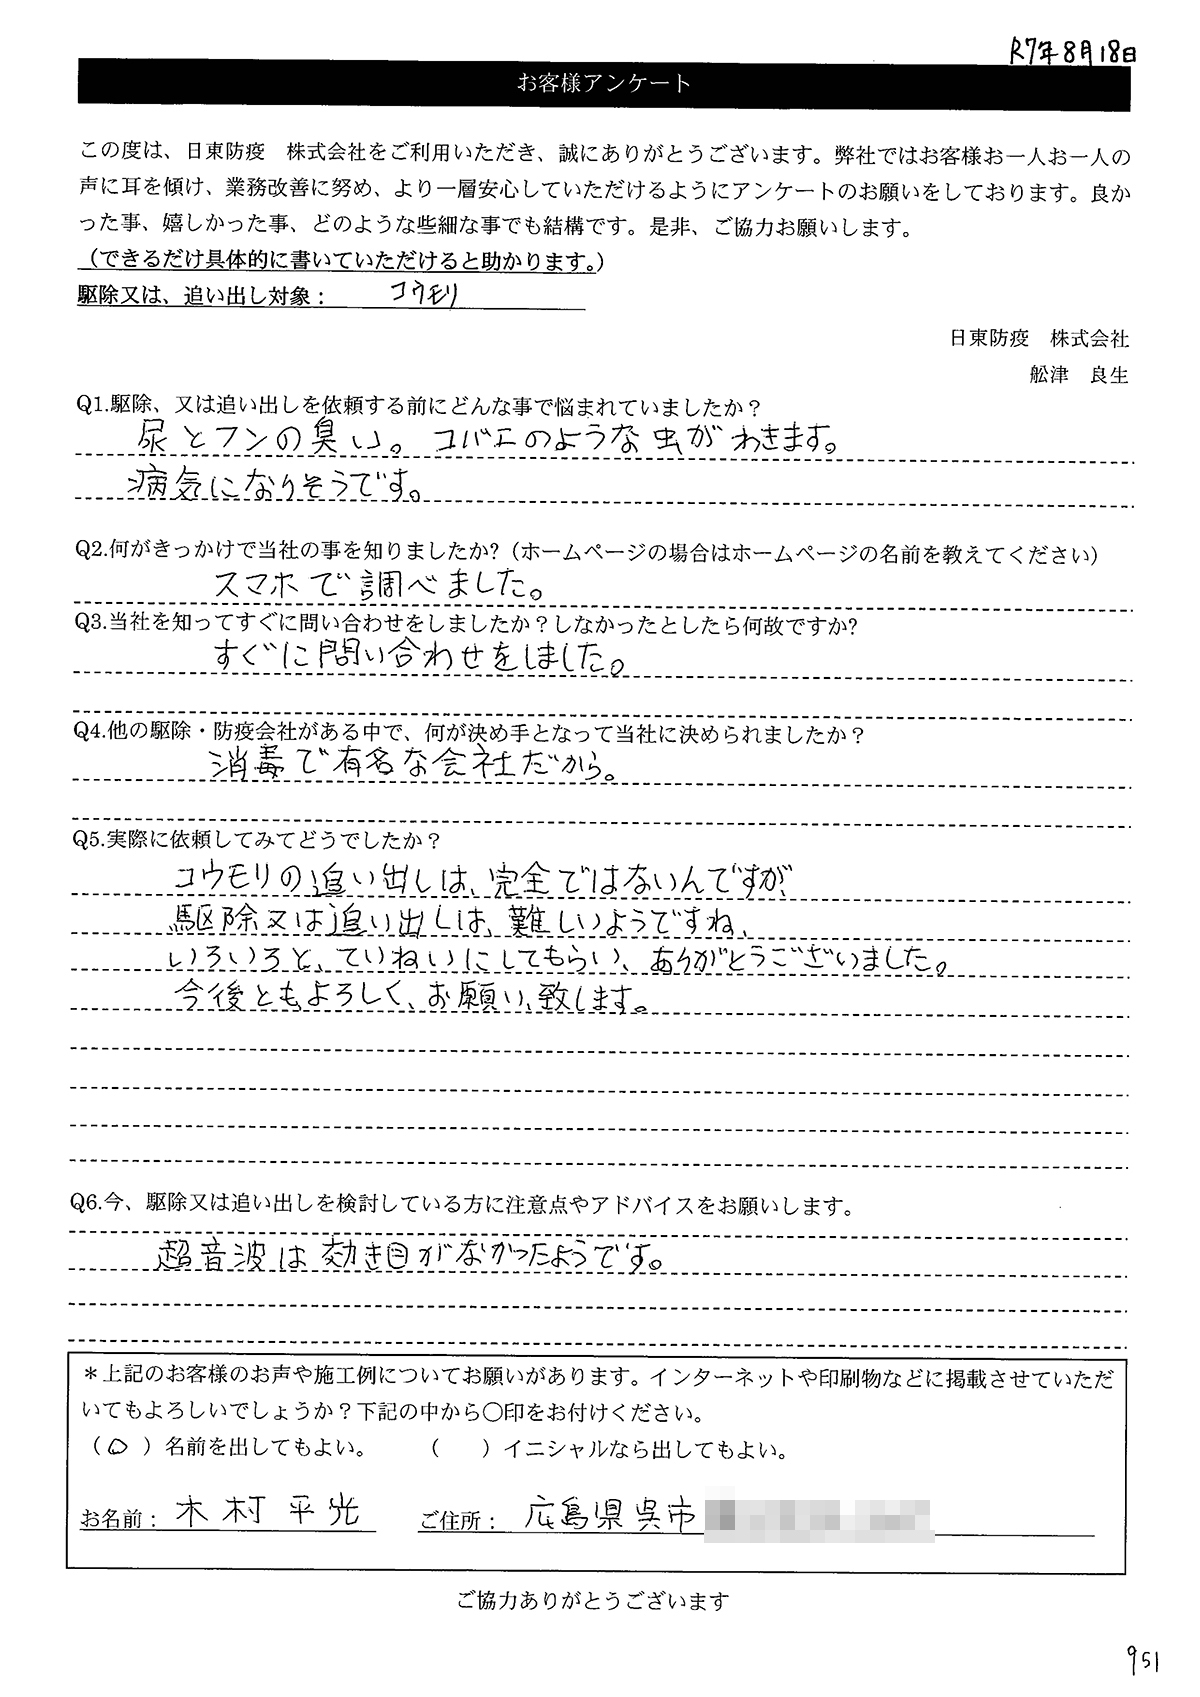 R7年8月18日
お客様アンケート
この度は、日東防疫　株式会社をご利用いただき、誠にありがとうございます。弊社ではお客様お一人お一人の
声に耳を傾け、業務改善に努め、より一層安心していただけるようにアンケートのお願いをしております。良か
った事、嬉しかった事、どのような些細な事でも結構です。是非、ご協力お願いします。
（できるだけ具体的に書いていただけると助かります。）
駆除又は、追い出し対象： コウモリ
日東防疫　株式会社
舩津　良生
Q1.駆除、又は追い出しを依頼する前にどんな事で悩まれていましたか？
尿とフンの臭い。コバエのような虫がわきます。
病気になりそうです。
Q2.何がきっかけで当社の事を知りましたか?（ホームページの場合はホームページの名前を教えてください）
スマホで調べました。
Q3.当社を知ってすぐに問い合わせをしましたか？しなかったとしたら何故ですか?
すぐに問い合わせをしました。
Q4.他の駆除・防疫会社がある中で、何が決め手となって当社に決められましたか？
消毒で有名な会社だから。
Q5.実際に依頼してみてどうでしたか？
コウモリの追い出しは、完全ではないんですが、
駆除又は追い出しは、難しいようですね、
いろいろと、ていねいにしてもらい、ありがとうございました。
今後ともよろしく、お願い、致します。
Q6.今、駆除又は追い出しを検討している方に注意点やアドバイスをお願いします。
超音波は効き目がなかったようです。
＊上記のお客様のお声や施工例についてお願いがあります。インターネットや印刷物などに掲載させていただ
いてもよろしいでしょうか？下記の中から〇印をお付けください。
（〇）名前を出してもよい。　（　）イニシャルなら出してもよい。
お名前： 木村 平光　ご住所： 広島県呉市
ご協力ありがとうございます
951